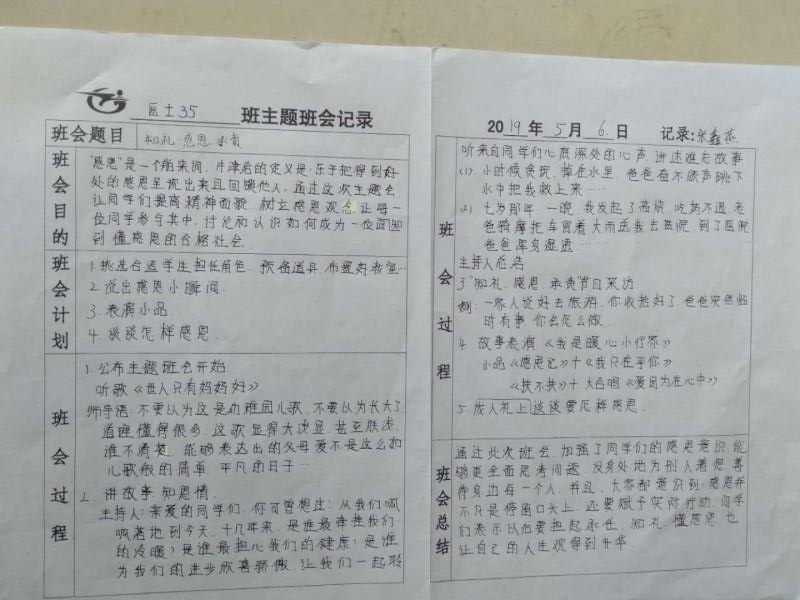 医士35 班主题班会记录
班会题目 知礼.感恩.承责
班会目的
"感恩"是一个舶来词,牛津给的定义是:乐于把得到好
处的感恩呈现出来且回馈他人。通过这次主题会,
让同学们提高精神面貌,树立感恩观念.让每一
位同学参与其中,讨论和认识如何成为一位
到懂感恩的合格社会.
班会计划
1.挑选合适学生担任角色.预备道具,布置好教室…
2.说出感恩小瞬间.
3.表演小品
4.谈谈怎样感恩.
班会过程
1.公布主题班会开始
听歌《世人只有妈妈好》
师导语:不要认为这是幼稚园儿歌,不要认为长大了
道理懂得很多,这歌显得太浅显,甚至肤浅,
谁不清楚,能够表达出的父母爱不是这么如
儿歌般的简单,平凡的日子…
2.讲故事.知恩情.
主持人:亲爱的同学们,你可曾想过:从我们呱
呱落地到今天,十几年来,是谁最牵挂我们
的冷暖?是谁最担心我们的健康?是谁
为我们的进步欣喜骄傲,让我们一起聆
2019年5月6.日 记录:张鑫燕
班会过程
听来自同学们心底深处的心声,讲述难忘故事
(1).小时候贪玩,掉在水里,爸爸奋不顾身跳下
水中把我救上来……
(2)七岁那年,一晚,我发起了高烧,吃药不退,老
爸骑摩托车冒着大雨送我去医院,到了医院
爸爸浑身湿透……
主持人总结
3."知礼,感恩,承责"节目采访.
例:一家人说好去旅游,你收拾好了,爸爸突然临
时有事,你会怎么做.
4.故事表演《我是暖心小行家》
小品《感恩记》+《我只在乎你》
《扶不扶》+大合唱《爱因为在心中》
5.成人礼上谈谈要怎样感恩.
班会总结
通过此次班会,加强了同学们的感恩意识,能
够更全面思考问题,设身处地为别人着想,善
待身边每一个人.并且,大家都意识到:感恩并
不只是停留口头上,还要赋予实际行动.同学
们表示以后要担起责任,知礼,懂感恩,也
让自己的人生观得到升华